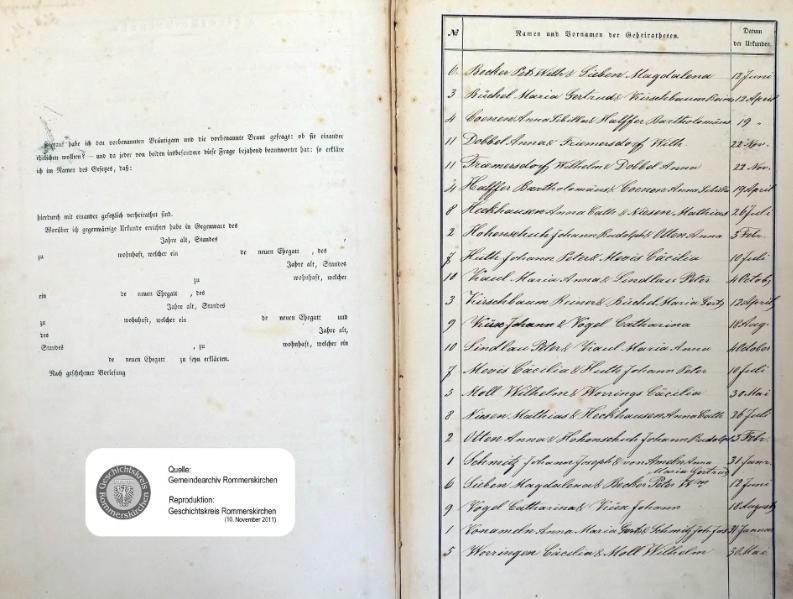 Hierauf habe ich den vorbenannten Bräutigam und die vorbenannte Braut gefragt: ob sie einander
ehelichen wollen? – und da jeder von beiden insbesondere diese Frage bejahend beantwortet hat: so erkläre
ich im Namen des Gesetzes, daß:
hierdurch mit einander gesetzlich verheirathet sind.
Worüber ich gegenwärtige Urkunde errichtet habe in Gegenwart des
Jahre alt, Standes ,
zu wohnhaft, welcher ein de neuen Ehegatt , des
Jahre alt, Standes
zu wohnhaft, welcher
ein de neuen Ehegatt , des
Jahre alt, Standes
zu wohnhaft, welcher ein de neuen Ehegatt und
des Jahre alt,
Standes , zu wohnhaft, welcher ein
de neuen Ehegatt zu seyn erklärten.
Nach geschehener Vorlesung
Geschichtskreis
Rommerskirchen
Quelle:
Gemeindearchiv Rommerskirchen
Reproduktion:
Geschichtskreis Rommerskirchen
(10. November 2011)
№ Namen und Vornamen der Geheiratheten. Datum der Urkunden.
6 Becker Pet. Wilh & Lieben Magdalena 12 Juni
3 Büchel Maria Gertrud & Kirschbaum 12 April
4 Coenen Anna & Halffer Bartholomäus 19 "
11 Dobbel Anna & Framersdorf Wilh. 22 Nov.
11 Framersdorf Wilhelm & Dobbel Anna 22 Nov.
4 Halffer Bartholomäus & Coenen Anna 19 April
8 Heckhausen Anna Cath & Niesen Mathias 26 Juli
2 Hohenschuh Johann Rudolph & Otten Anna 3 Febr.
7 Huth Johann Peter & Mevis Cäcilia 10 Juli
10 Kraul Maria Anna & Lindlau Peter 4 Octob
3 Kirschbaum & Büchel Maria Gert 12 April
9 Johann & Vogel Catharina 18 Aug.
10 Lindlau Peter & Kraul Maria Anna 4 October
7 Mevis Cäcilia & Huth Johann Peter 10 Juli
5 Moll Wilhelm & Worrings Cäcilia 30 Mai
8 Niesen Mathias & Heckhausen Anna Cath 26 Juli
2 Otten Anna & Hohenschuh Johann Rudolph 3 Febr.
1 Schmitz Johann Joseph & von Ameln Anna 31 Janr.
Maria Gertrud
6 Lieben Magdalena & Becker Peter Wm 12 Juni
9 Vogel Catharina & Johann 18 August
1 Vonameln Anna Maria Gert & Schmitz Joh Jos 31 Januar
5 Worringen Cäcilia & Moll Wilhelm 30 Mai